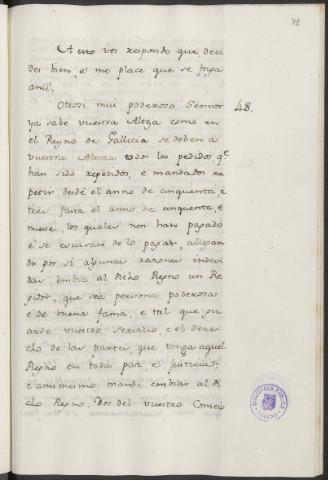 72
A esto vos respondo que deci
des bien, e me place que se faga
ansi,
Otrosi mui poderoso Sennor
48.
ya sabe vuestra Alteza como en
el Reyno de Gallicia se deben a
vuestra Alteza todos los pedidos q.e
han sido repetidos, e mandados re
petir desde el anno de cinquenta, e
tres fasta el anno de cinquenta, e
nueve, los quales non han pagado
e se escusan de lo pagar, allegan
do por si algunas razones indevi
das, embie al dicho Reyno un Re
gidor, que sea persona poderosa
e de buena fama, e tal que gu
arde vuestro servicio, e el dere
cho de las partes, que tenga aquel
Reyno en toda paz e justicia;
e ansimismo mande embiar al di
cho Reyno, dos del vuestro Consejo
BIBLIOTECA PÚBLICA
TOLEDO